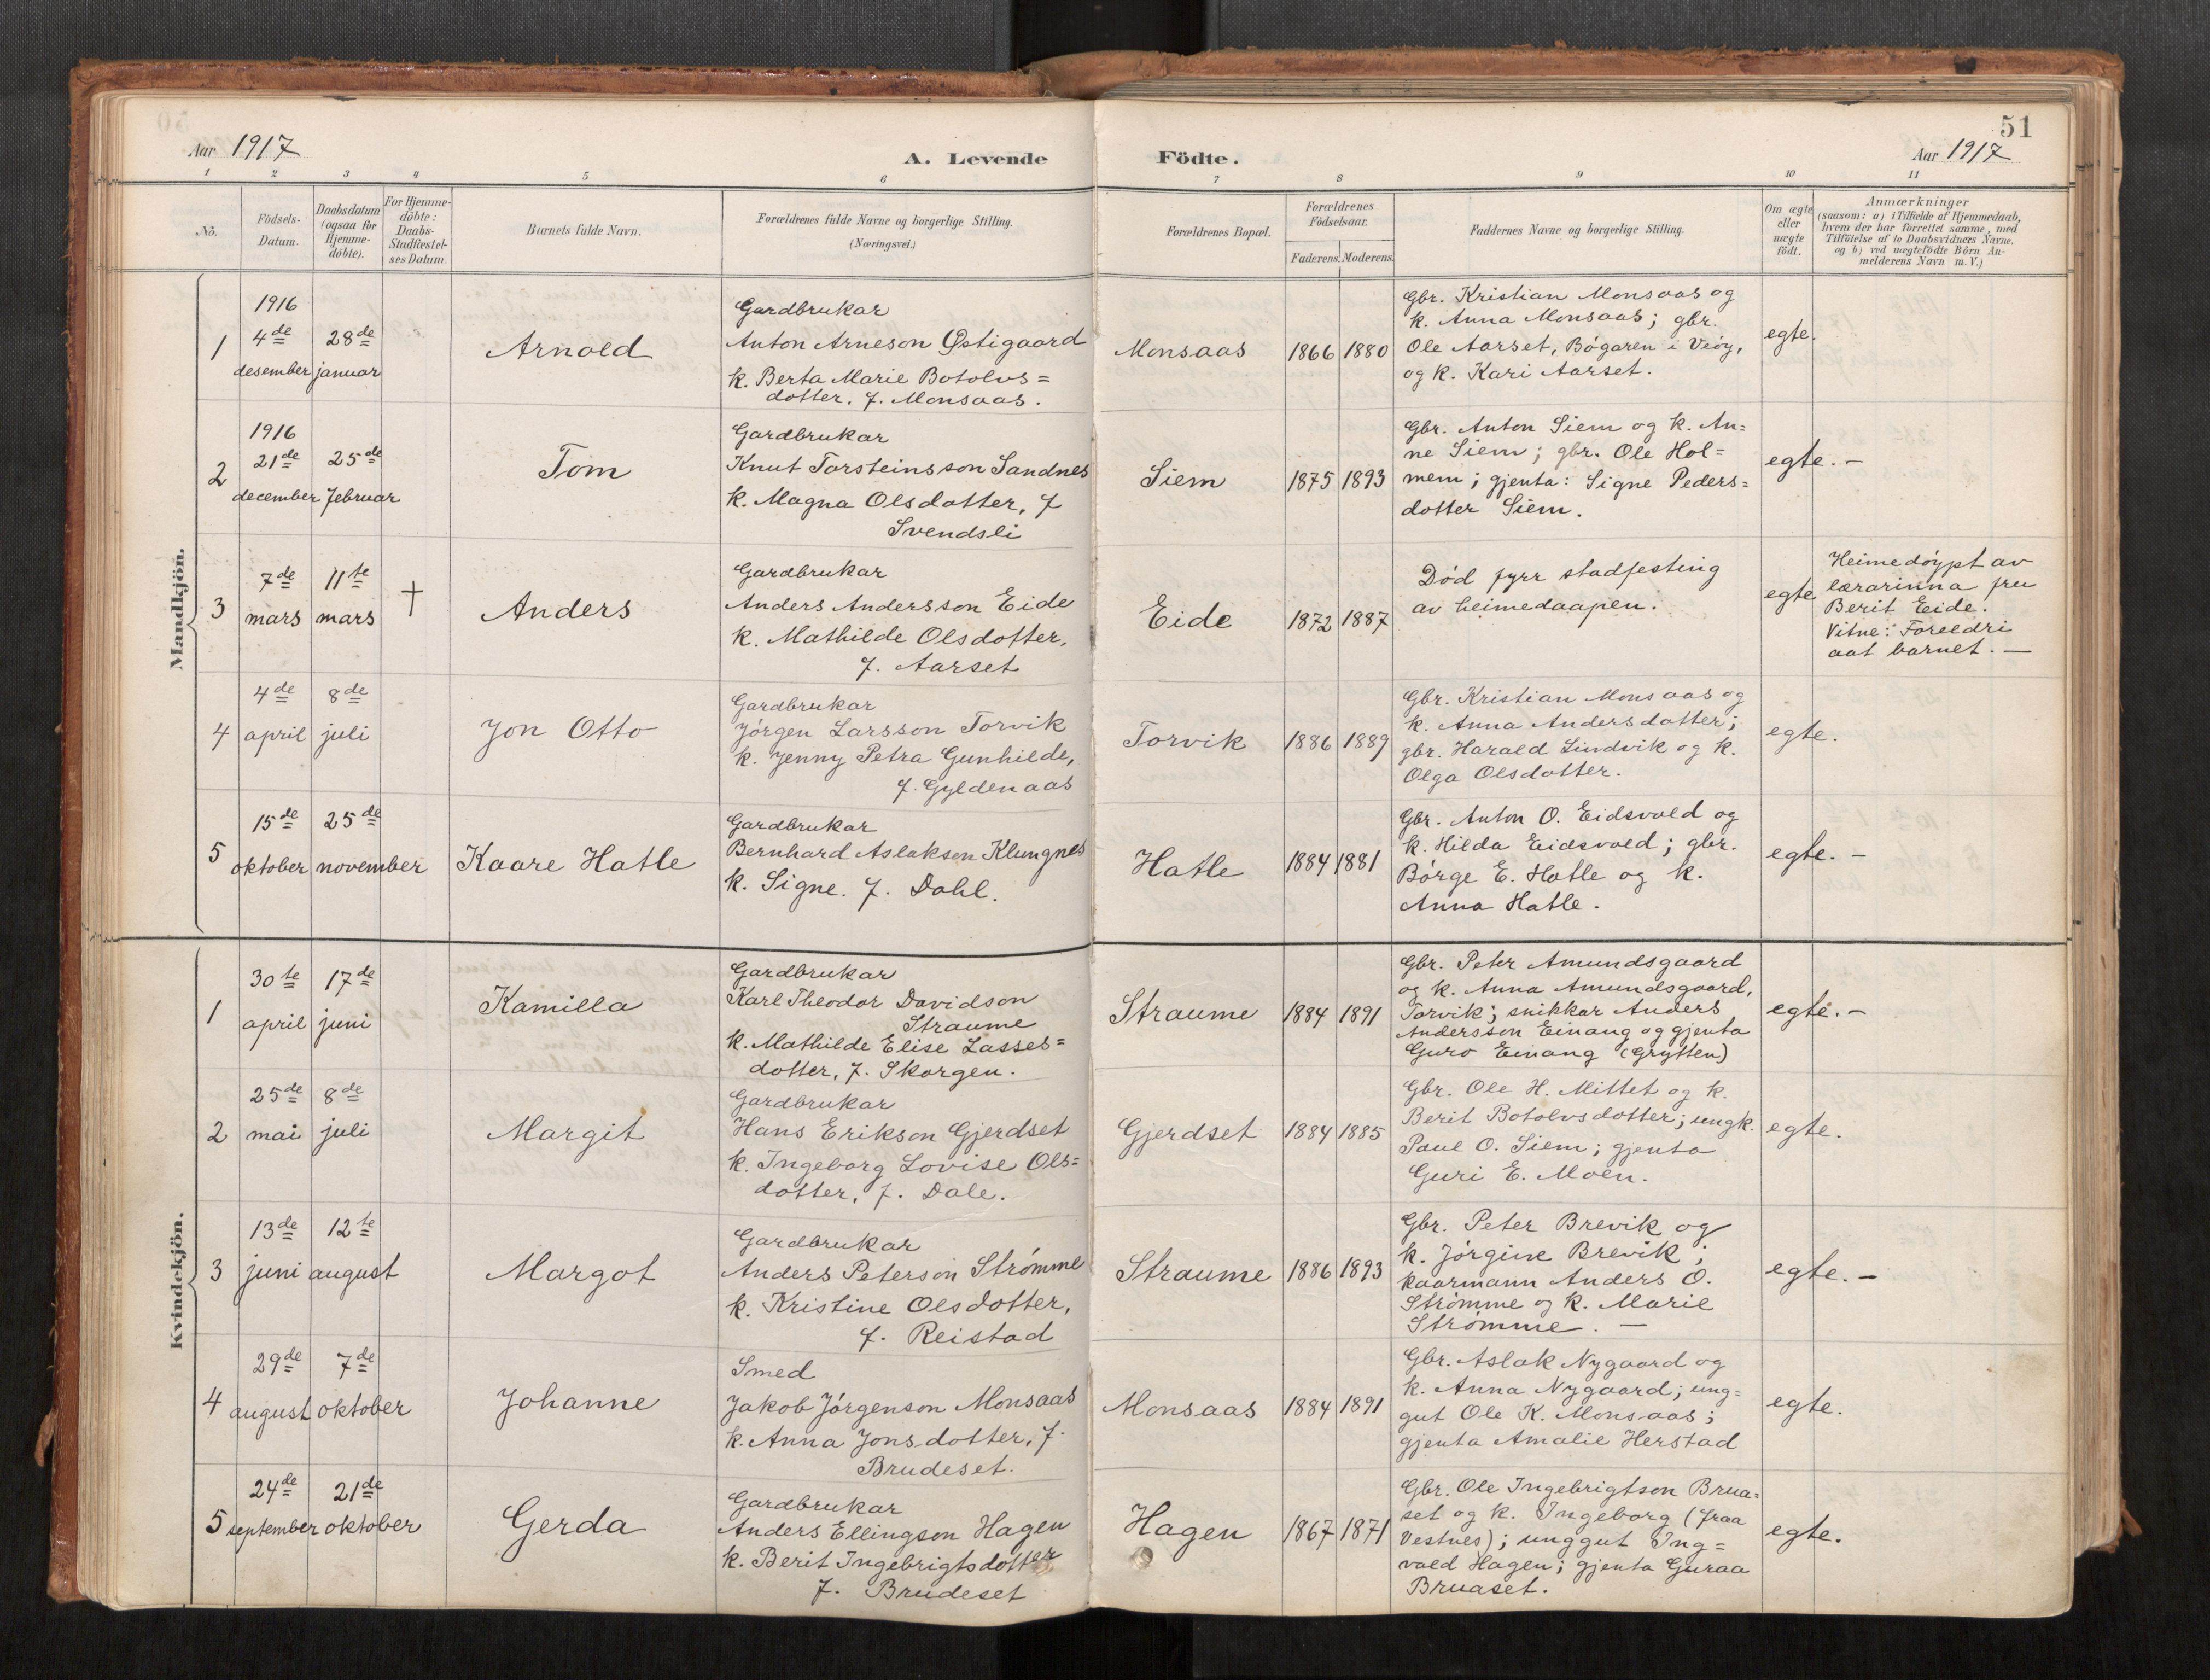 51
Aar 1917
A. Levende Födte.
Aar 1917
1 2 3 4 5 6 7 8 9 10 11
No.
Födsels-Datum.
Daabsdatum (ogsaa for Hjemme-döbte).
For Hjemme-döbte: Daabs-Stadfæstel-ses Datum.
Barnets fulde Navn.
Forældrenes fulde Navne og borgerlige Stilling.
(Næringsvei.)
Forældrenes Bopæl.
Forældrenes Födselsaar.
Faderens. Moderens.
Faddernes Navne og borgerlige Stilling.
Om ægte eller uægte födt.
Anmærkninger
(saasom: a) i Tilfælde af Hjemmedaab,
hvem der har forrettet samme, med
Tilföielse af to Daabsvidners Navne,
og b) ved uægtefödte Börn An-
melderens Navn m. V.)
Mandkjön.
1
1916
4de desember
28de januar
Arnold
Gardbrukar
Anton Arneson Østigaard
k. Berta Marie Botolvs=
dotter, f. Monsaas.
Monsaas
1866 1880
Gbr. Kristian Monsaas og
k. Anna Monsaas; gbr.
Ole Aarset, Bøgaren i Veøy,
og k. Kari Aarset.
egte.
2
1916
21de december
25de februar
Tom
Gardbrukar
Knut Torsteinsson Sandnes
k. Magna Olsdotter, f
Svendsli
Siem
1875 1893
Gbr. Anton Siem og k. An=
ne Siem; gbr. Ole Hol=
mem; gjenta: Signe Peders=
dotter Siem.
egte. -
3
7de mars
11te mars
†
Anders
Gardbrukar
Anders Andersson Eide
k. Mathilde Olsdotter,
f. Aarset
Eide
1872 1887
Død fyrr stadfesting
av heimedaapen.
egte
Heimedøypt av
lærarinna fru
Berit Eide.
Vitne: Foreldri
aat barnet. -
4
4de april
8de juli
Jon Otto
Gardbrukar
Jørgen Larsson Torvik
k. Jenny Petra Gunhilde,
f. Gyldenaas
Torvik
1886 1889
Gbr. Kristian Monsaas og
k. Anna Andersdotter;
gbr. Harald Lindvik og k.
Olga Olsdotter.
egte.
5
15de oktober
25de november
Kaare Hatle
Gardbrukar
Bernhard Aslaksen Klungnes
k. Signe. f. Dahl.
Hatle
1884 1881
Gbr. Anton O. Eidsvold og
k. Hilda Eidsvold; gbr.
Børge E. Hatle og k.
Anna Hatle.
egte. -
Kvindekjön.
1
30te april
17de juni
Kamilla
Gardbrukar
Karl Theodor Davidson
Straume
k. Mathilde Elise Lasses=
dotter, f. Skorgen.
Straume
1884 1891
Gbr. Peter Amundsgaard
og k. Anna Amundsgaard,
Torvik; snikkar Anders
Andersson Einang og gjenta
Guro Einang (Grytten)
egte. -
2
25de mai
8de juli
Margit
Gardbrukar
Hans Erikson Gjerdset
k. Ingeborg Lovise Ols=
dotter, f. Dale.
Gjerdset
1884 1885
Gbr. Ole H. Mittet og k.
Berit Botolvsdotter; ungk.
Paul O. Siem; gjenta
Guri E. Moen.
egte.
3
13de juni
12te august
Margot
Gardbrukar
Anders Peterson Strømme
k. Kristine Olsdotter,
f. Reistad
Straume
1886 1893
Gbr. Peter Brevik og
k. Jørgine Brevik;
kaarmann Anders O.
Strømme og k. Marie
Strømme. -
egte. -
4
29de august
7de oktober
Johanne
Smed
Jakob Jørgenson Monsaas
k. Anna Jonsdotter, f.
Brudeset.
Monsaas
1884 1891
Gbr. Aslak Nygaard og
k. Anna Nygaard; ung=
gut Ole K. Monsaas;
gjenta Amalie Herstad
egte.
5
24de september
21de oktober
Gerda
Gardbrukar
Anders Ellingson Hagen
k. Berit Ingebrigtsdotter
f. Brudeset
Hagen
1867 1871
Gbr. Ole Ingebrigtson Brua=
set og k. Ingeborg (fraa
Vestnes); unggut Ing=
vald Hagen; gjenta Guraa
Bruaset.
egte.